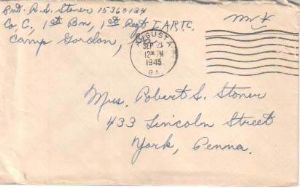 Pvt. R. S. Stoner 15360134
Co C, 1st Bn, 1st Regt EARTC
Camp Gordon,
AUGUSTA
SEP 21
12 PM
1945
GA.
Mrs. Robert S. Stoner
433 Lincoln Street
York, Penna.